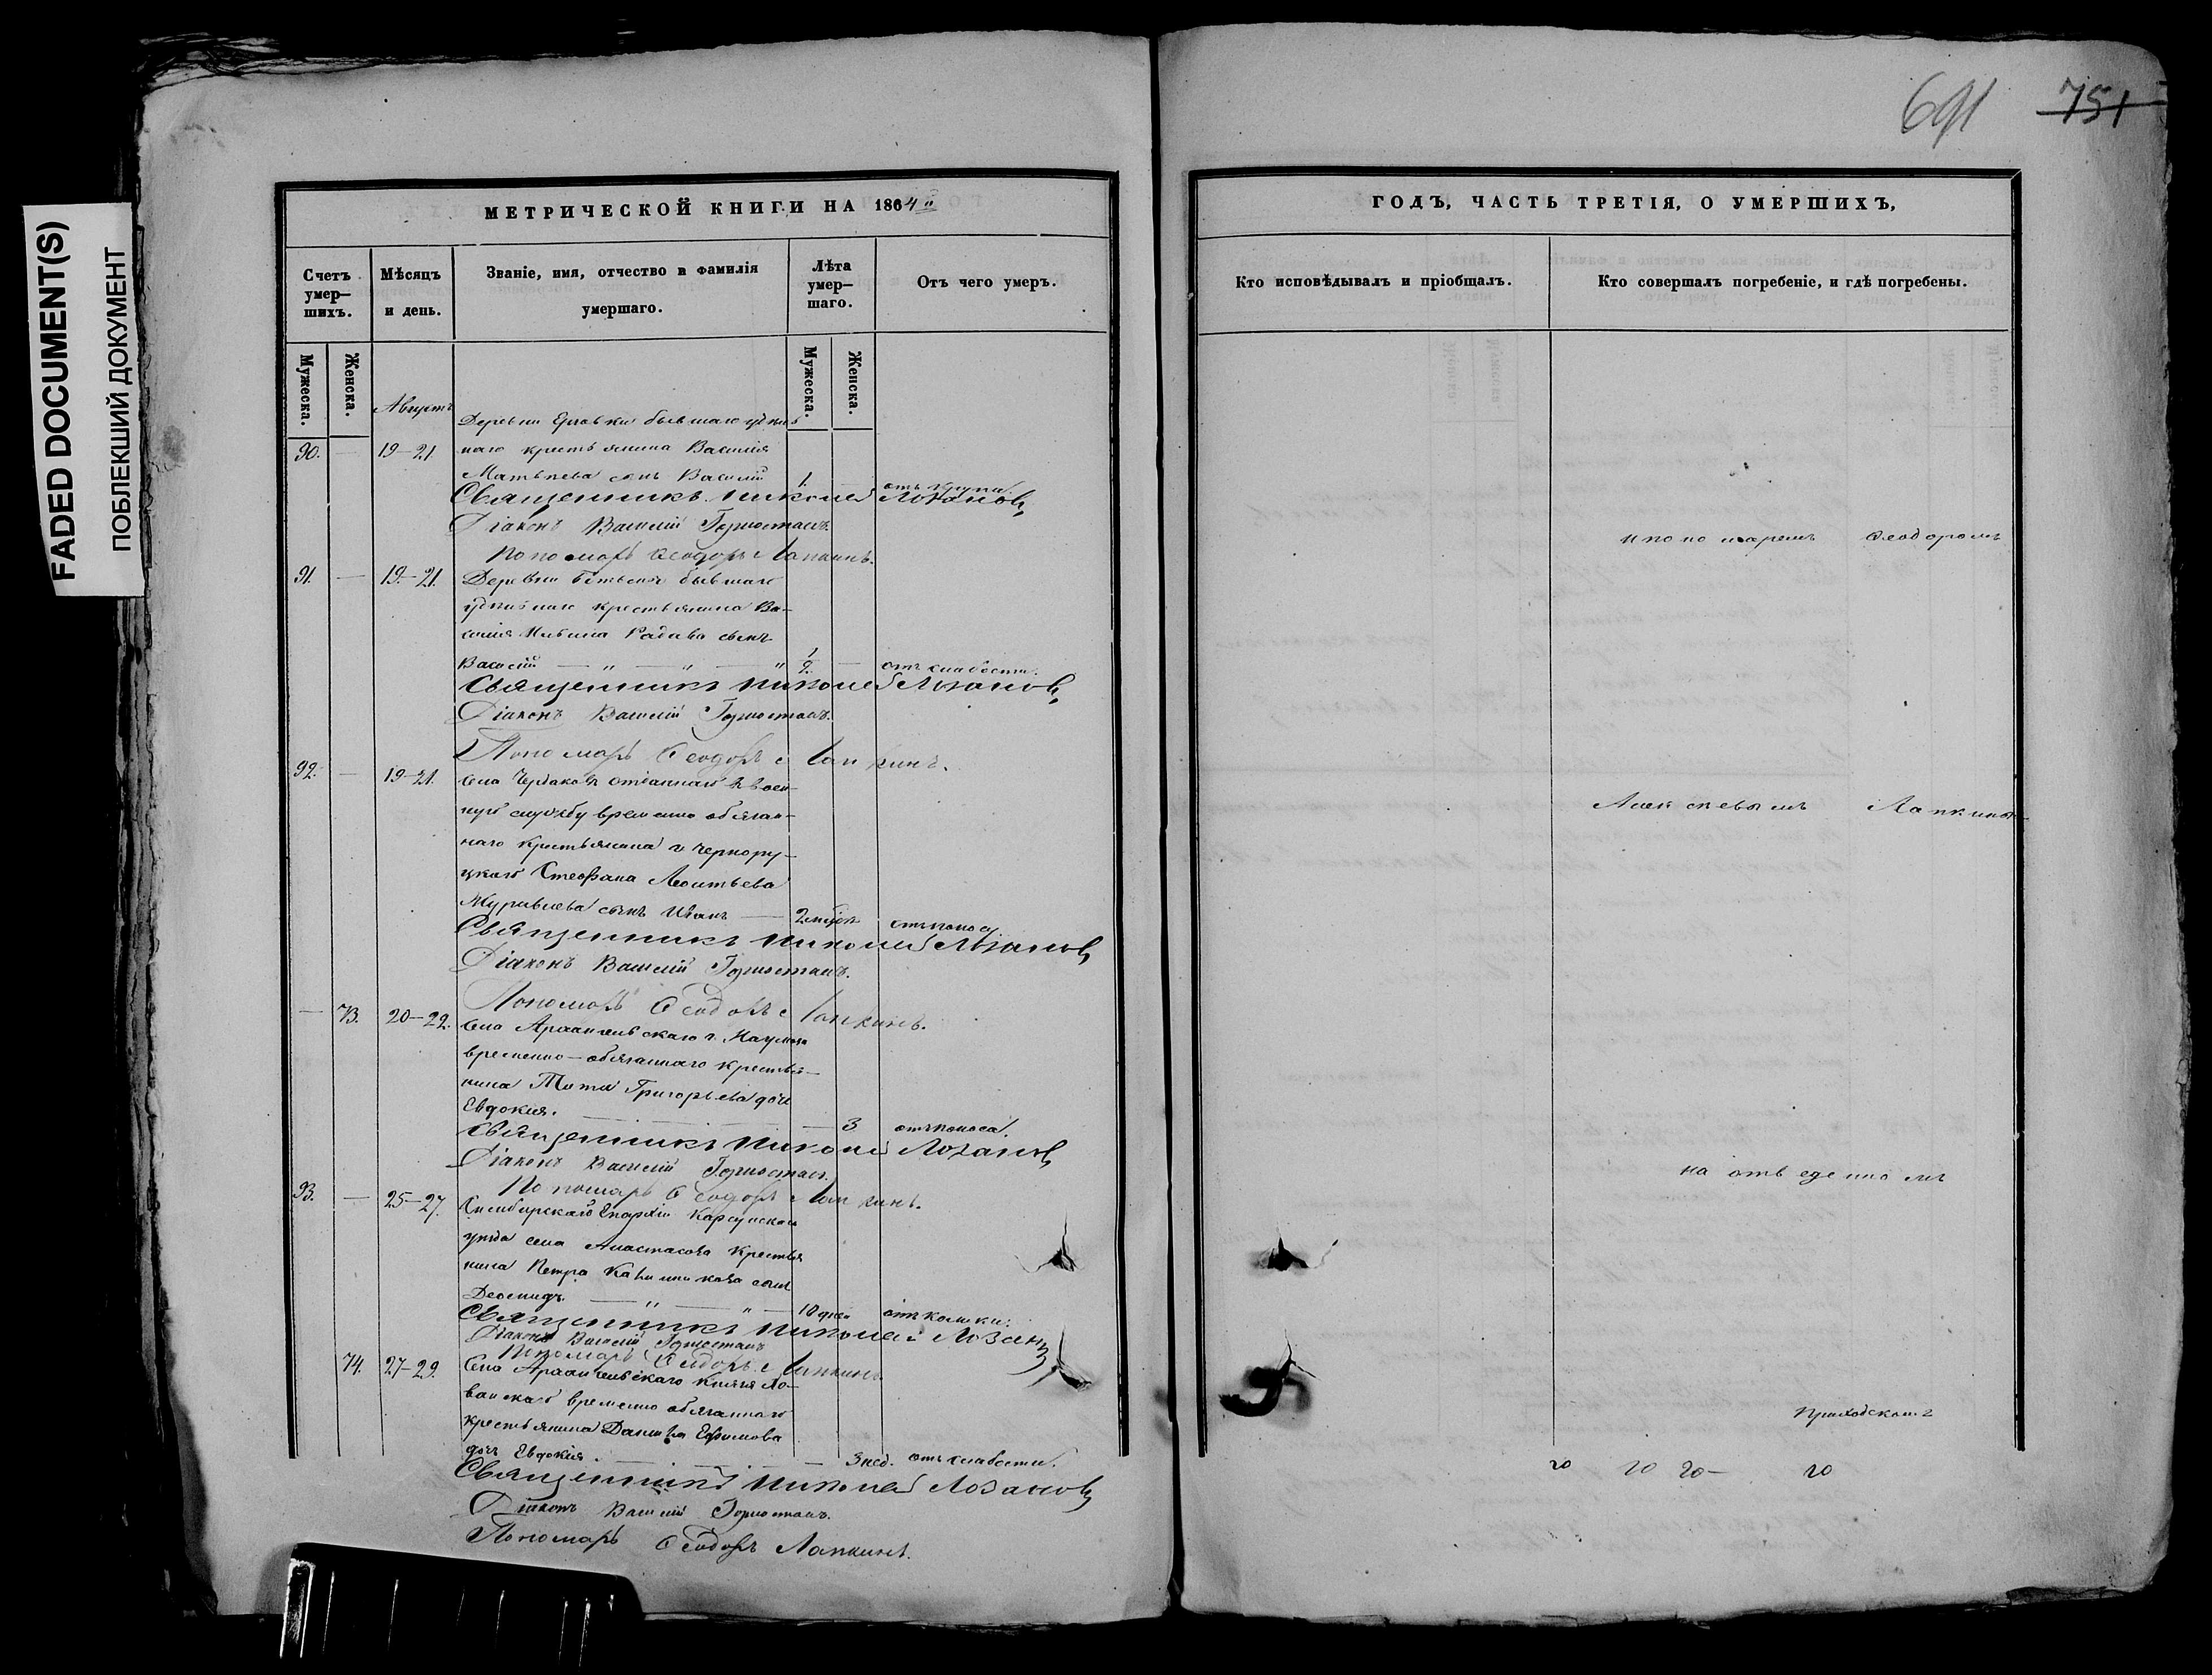 FADED DOCUMENT(S)
ПОБЛЕКШИЙ ДОКУМЕНТ
691 751
МЕТРИЧЕСКОЙ КНИГИ НА 1864
Счетъ умер–шихъ.
Мѣсяцъ и день.
Званіе, имя, отчество и фамилія умершаго.
Лѣта умер–шаго.
Отъ чего умеръ.
Мужеска.
Женска.
Мужеска.
Женска.
Августъ
Деревни бывшаго удѣль
90. — 19–21. наго крестьянина Василія
Матвѣева сынъ Василій 1. —
Священникъ Николай Лозановъ
Діаконъ Василій Горностаевъ.
Пономарь Ѳеодоръ Лапкинъ.
91. — 19–21. Деревни бывшаго
удѣльнаго крестьянина Ва–
силія сынъ
Василій — „ — „ — „ 1/2. — отъ слабости.
Священникъ Николай Лозановъ
Діаконъ Василій Горностаевъ.
Пономарь Ѳеодоръ Лапкинъ.
92. — 19–21. Села Чердаковъ отданнаго въ воен–
ную службу временно обязан–
наго крестьянина г. Черпору–
цкаго Стефана Леонтьева
Журавлева сынъ Иванъ — отъ поноса.
Священникъ Николай Лозановъ
Діаконъ Василій Горностаевъ.
Пономарь Ѳеодоръ Лапкинъ.
— 73. 20–22. Села Архангельскаго г. Наумова
временно–обязаннаго крестья–
нина Тита Григорьева дочь
Евдокия. — 3 отъ поноса.
Священникъ Николай Лозановъ
Діаконъ Василій Горностаевъ.
Пономарь Ѳеодоръ Лапкинъ.
93. — 25–27. Симбирской Епархіи Карсунскаго
уѣзда села Анастасова крестья
нина Петра Калинникова сынъ
Деомидъ. — „ — „ — 10 дней
Священникъ Николай Лозановъ
Діаконъ Василій Горностаевъ
Пономарь Ѳеодоръ Лапкинъ.
74. 27–29. Села Архангельскаго князя Ло–
бановскаго временно обязаннаго
крестьянина Данила Ефимова
дочь Евдокія. — 3 нед. отъ слабости.
Священникъ Николай Лозановъ
Діаконъ Василій Горностаевъ.
Пономарь Ѳеодоръ Лапкинъ.
ГОДЪ, ЧАСТЬ ТРЕТІЯ, О УМЕРШИХЪ,
Кто исповѣдывалъ и пріобщалъ.
Кто совершалъ погребеніе, и гдѣ погребены.
и пономаремъ Ѳеодоромъ
Алексѣевымъ Лапкины–
на отведенномъ
Приходском.